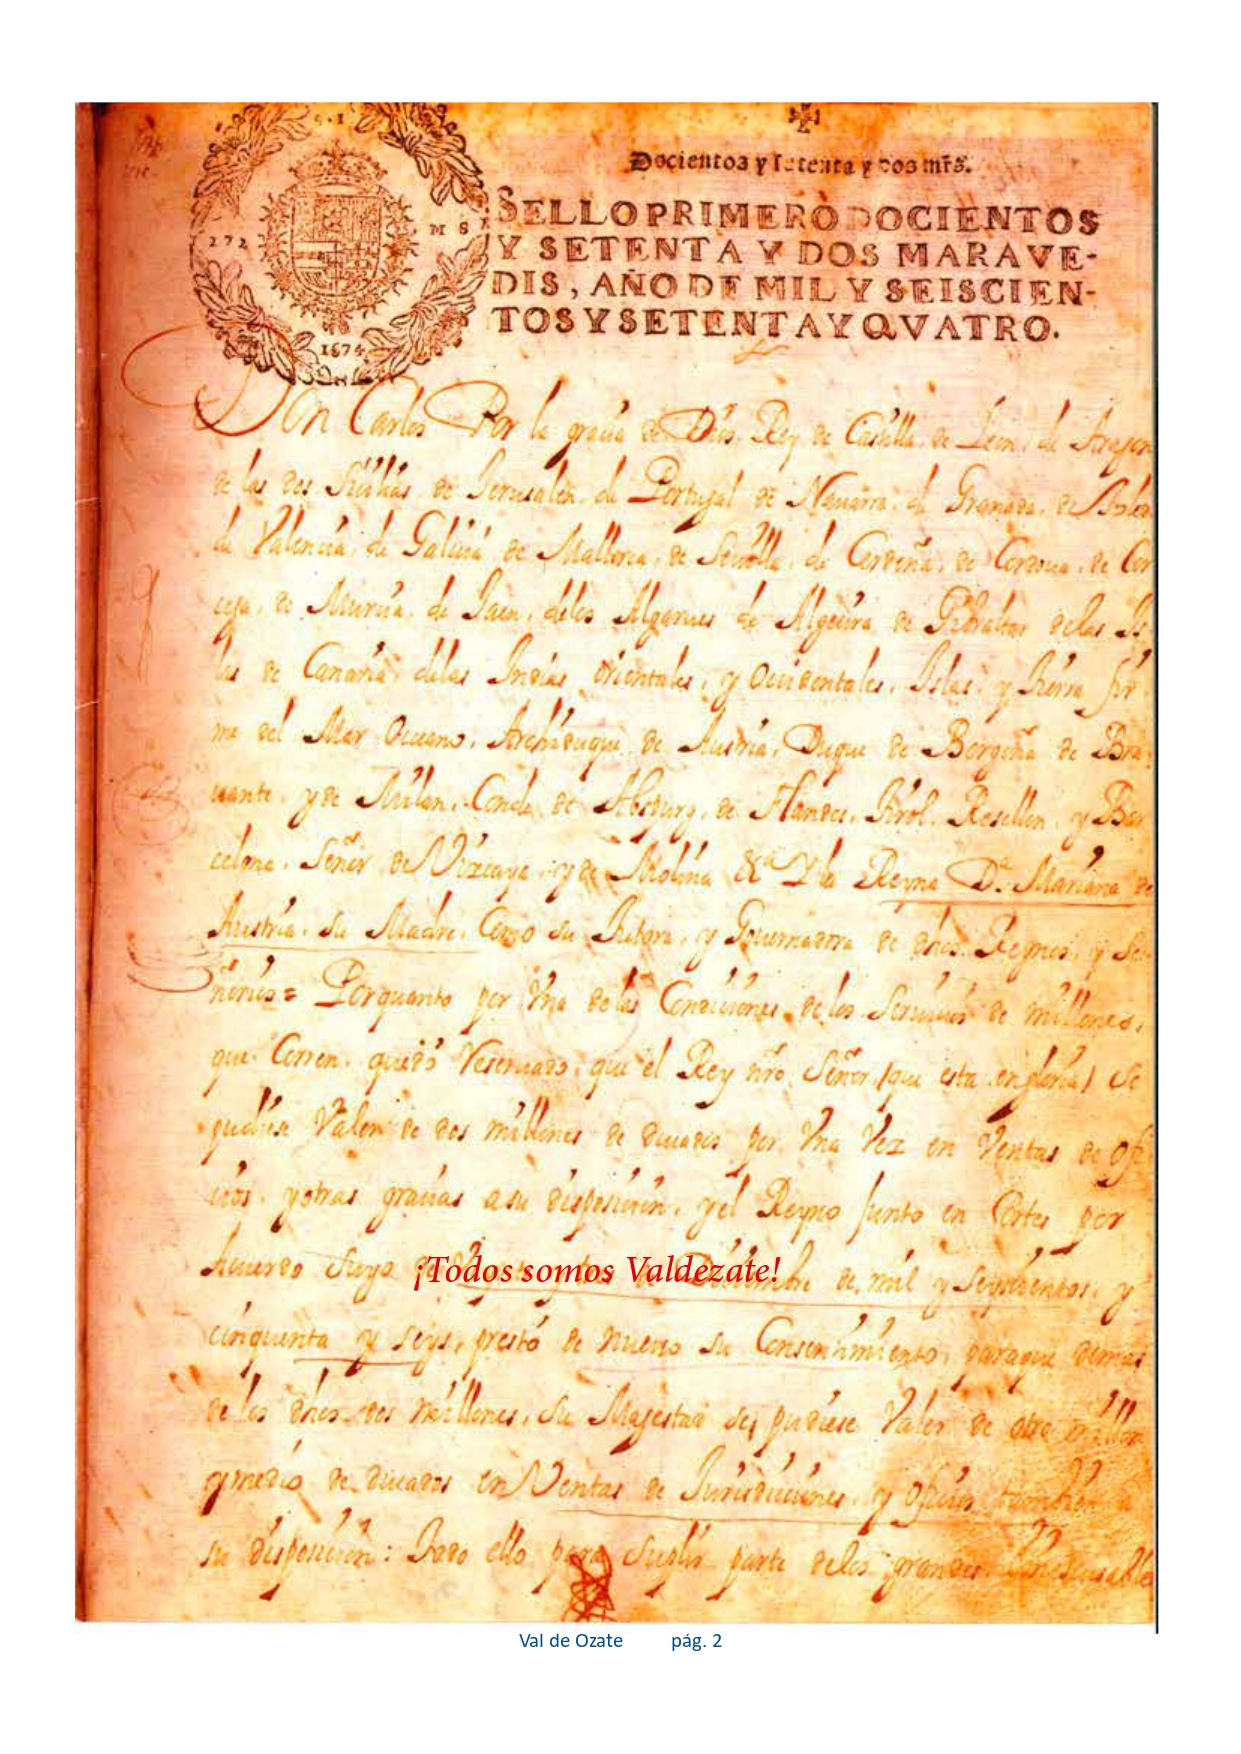 272 M S
1674
Docientos y setenta y dos mrs.
SELLO PRIMERO DOCIENTOS
Y SETENTA Y DOS MARAVE-
DIS, AÑO DE MIL Y SEISCIEN-
TOS Y SETENTA Y QVATRO.
Don Carlos Por la gracia de Dios Rey de Castilla, de Leon, de Aragon
de las dos Sicilias, de Jerusalen, de Portugal de Nauarra, de Granada, de Toledo
de Valencia, de Galicia de Mallorca, de Seuilla, de Cerdeña, de Cordoua, de Cor
cega, de Murcia, de Jaen, delos Algarues de Algecira de Gibraltar delas Is
las de Canaria delas Indias orientales, y Occidentales, Islas, y tierra fir
me del Mar Oceano, Archiduque de Austria, Duque de Borgoña de Bra
uante, y de Milan, Conde de Abspurg, de Flandes, tirol, Rosellon, y Bar
celona, Señor de Vizcaya, y de Molina &ª Y la Reyna Dª Mariana de
Austria, su Madre, Como su tutora, y Gouernadora de dhos Reynos, y Se
ñorios = Porquanto por Vna de las Condiciones de los Seruicios de millones,
que Corren, quedó reseruado, que el Rey nro Señor (que esta en gloria) se
pudiese Valer de dos millones de ducados por Vna Vez en Ventas de ofi
cios, y otras gracias a su disposicion, y el Reyno Junto en Cortes por
Acuerdo Suyo de mil y seyscientos, y
¡Todos somos Valdezate!
cinquenta y seys, prestó de nueuo su Consentimiento, paraque demas
de los dhos dos millones, su Magestad se pudiese Valer de otro millon
y medio de ducados en Ventas de Jurisdiciones, y oficios tambien a
su disposicion: Todo ello para suplir parte delos grandes
Val de Ozate pág. 2